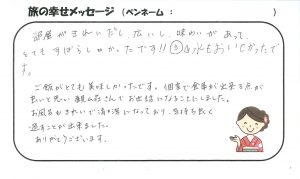 旅の幸せメッセージ (ペンネーム： )
部屋がきれいだし、広いし、味わいがあって、
とてもすばらしかったです!! お水もおいしかったで
す。
ご飯がとても美味しかったです。個室で食事が出来る点が
良いと思い 観山荘さんでお世話になることにしました。
お風呂もきれいで清潔になっており、気持ち良く
過すことが出来ました。
ありがとうございます。